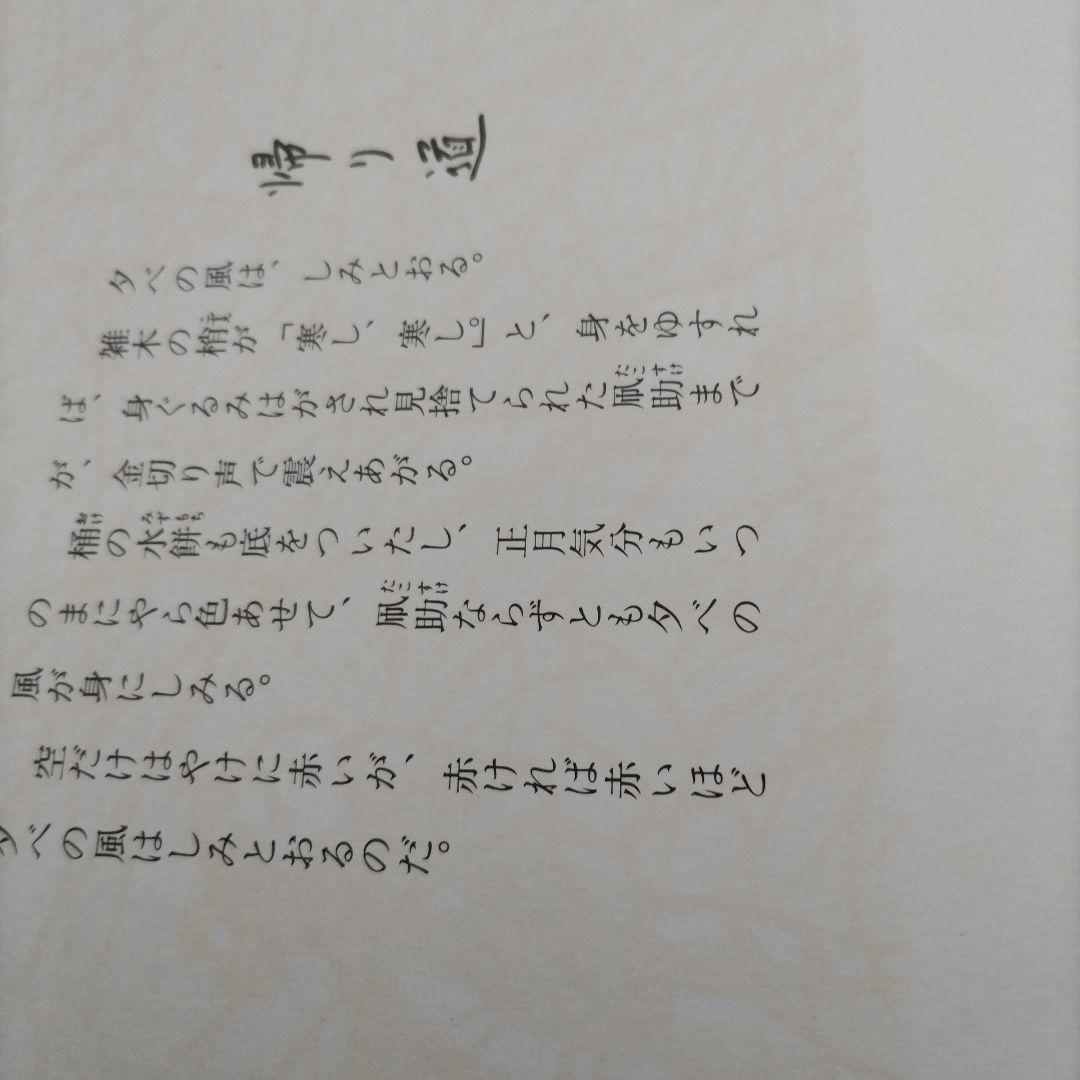 帰り道
夕べの風は、しみとおる。
雑木の梢が「寒し、寒し。」と、身をゆすれ
ば、身ぐるみはがされ見捨てられた凧助まで
が、金切り声で震えあがる。
桶の水餅も底をついたし、正月気分もいつ
のまにやら色あせて、凧助ならずとも夕べの
風が身にしみる。
空だけはやけに赤いが、赤ければ赤いほど
夕べの風はしみとおるのだ。